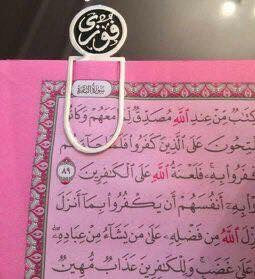 فوزي
سُورَةُ البَقَرَةِ
كِتَٰبٌ مِّنْ عِندِ ٱللَّهِ مُصَدِّقٌ لِّمَا مَعَهُمْ وَكَانُوا
يَسْتَفْتِحُونَ عَلَى ٱلَّذِينَ كَفَرُوا۟ فَلَمَّا جَآءَهُم
كَفَرُوا۟ بِهِۦ فَلَعْنَةُ ٱللَّهِ عَلَى ٱلْكَٰفِرِينَ ٨٩
بِهِۦٓ أَنفُسَهُمْ أَن يَكْفُرُوا۟ بِمَآ أَنزَلَ
ٱللَّهُ مِن فَضْلِهِۦ عَلَىٰ مَن يَشَآءُ مِنْ عِبَادِهِۦ
غَضَبٍ وَلِلْكَٰفِرِينَ عَذَابٌ مُّهِينٌ